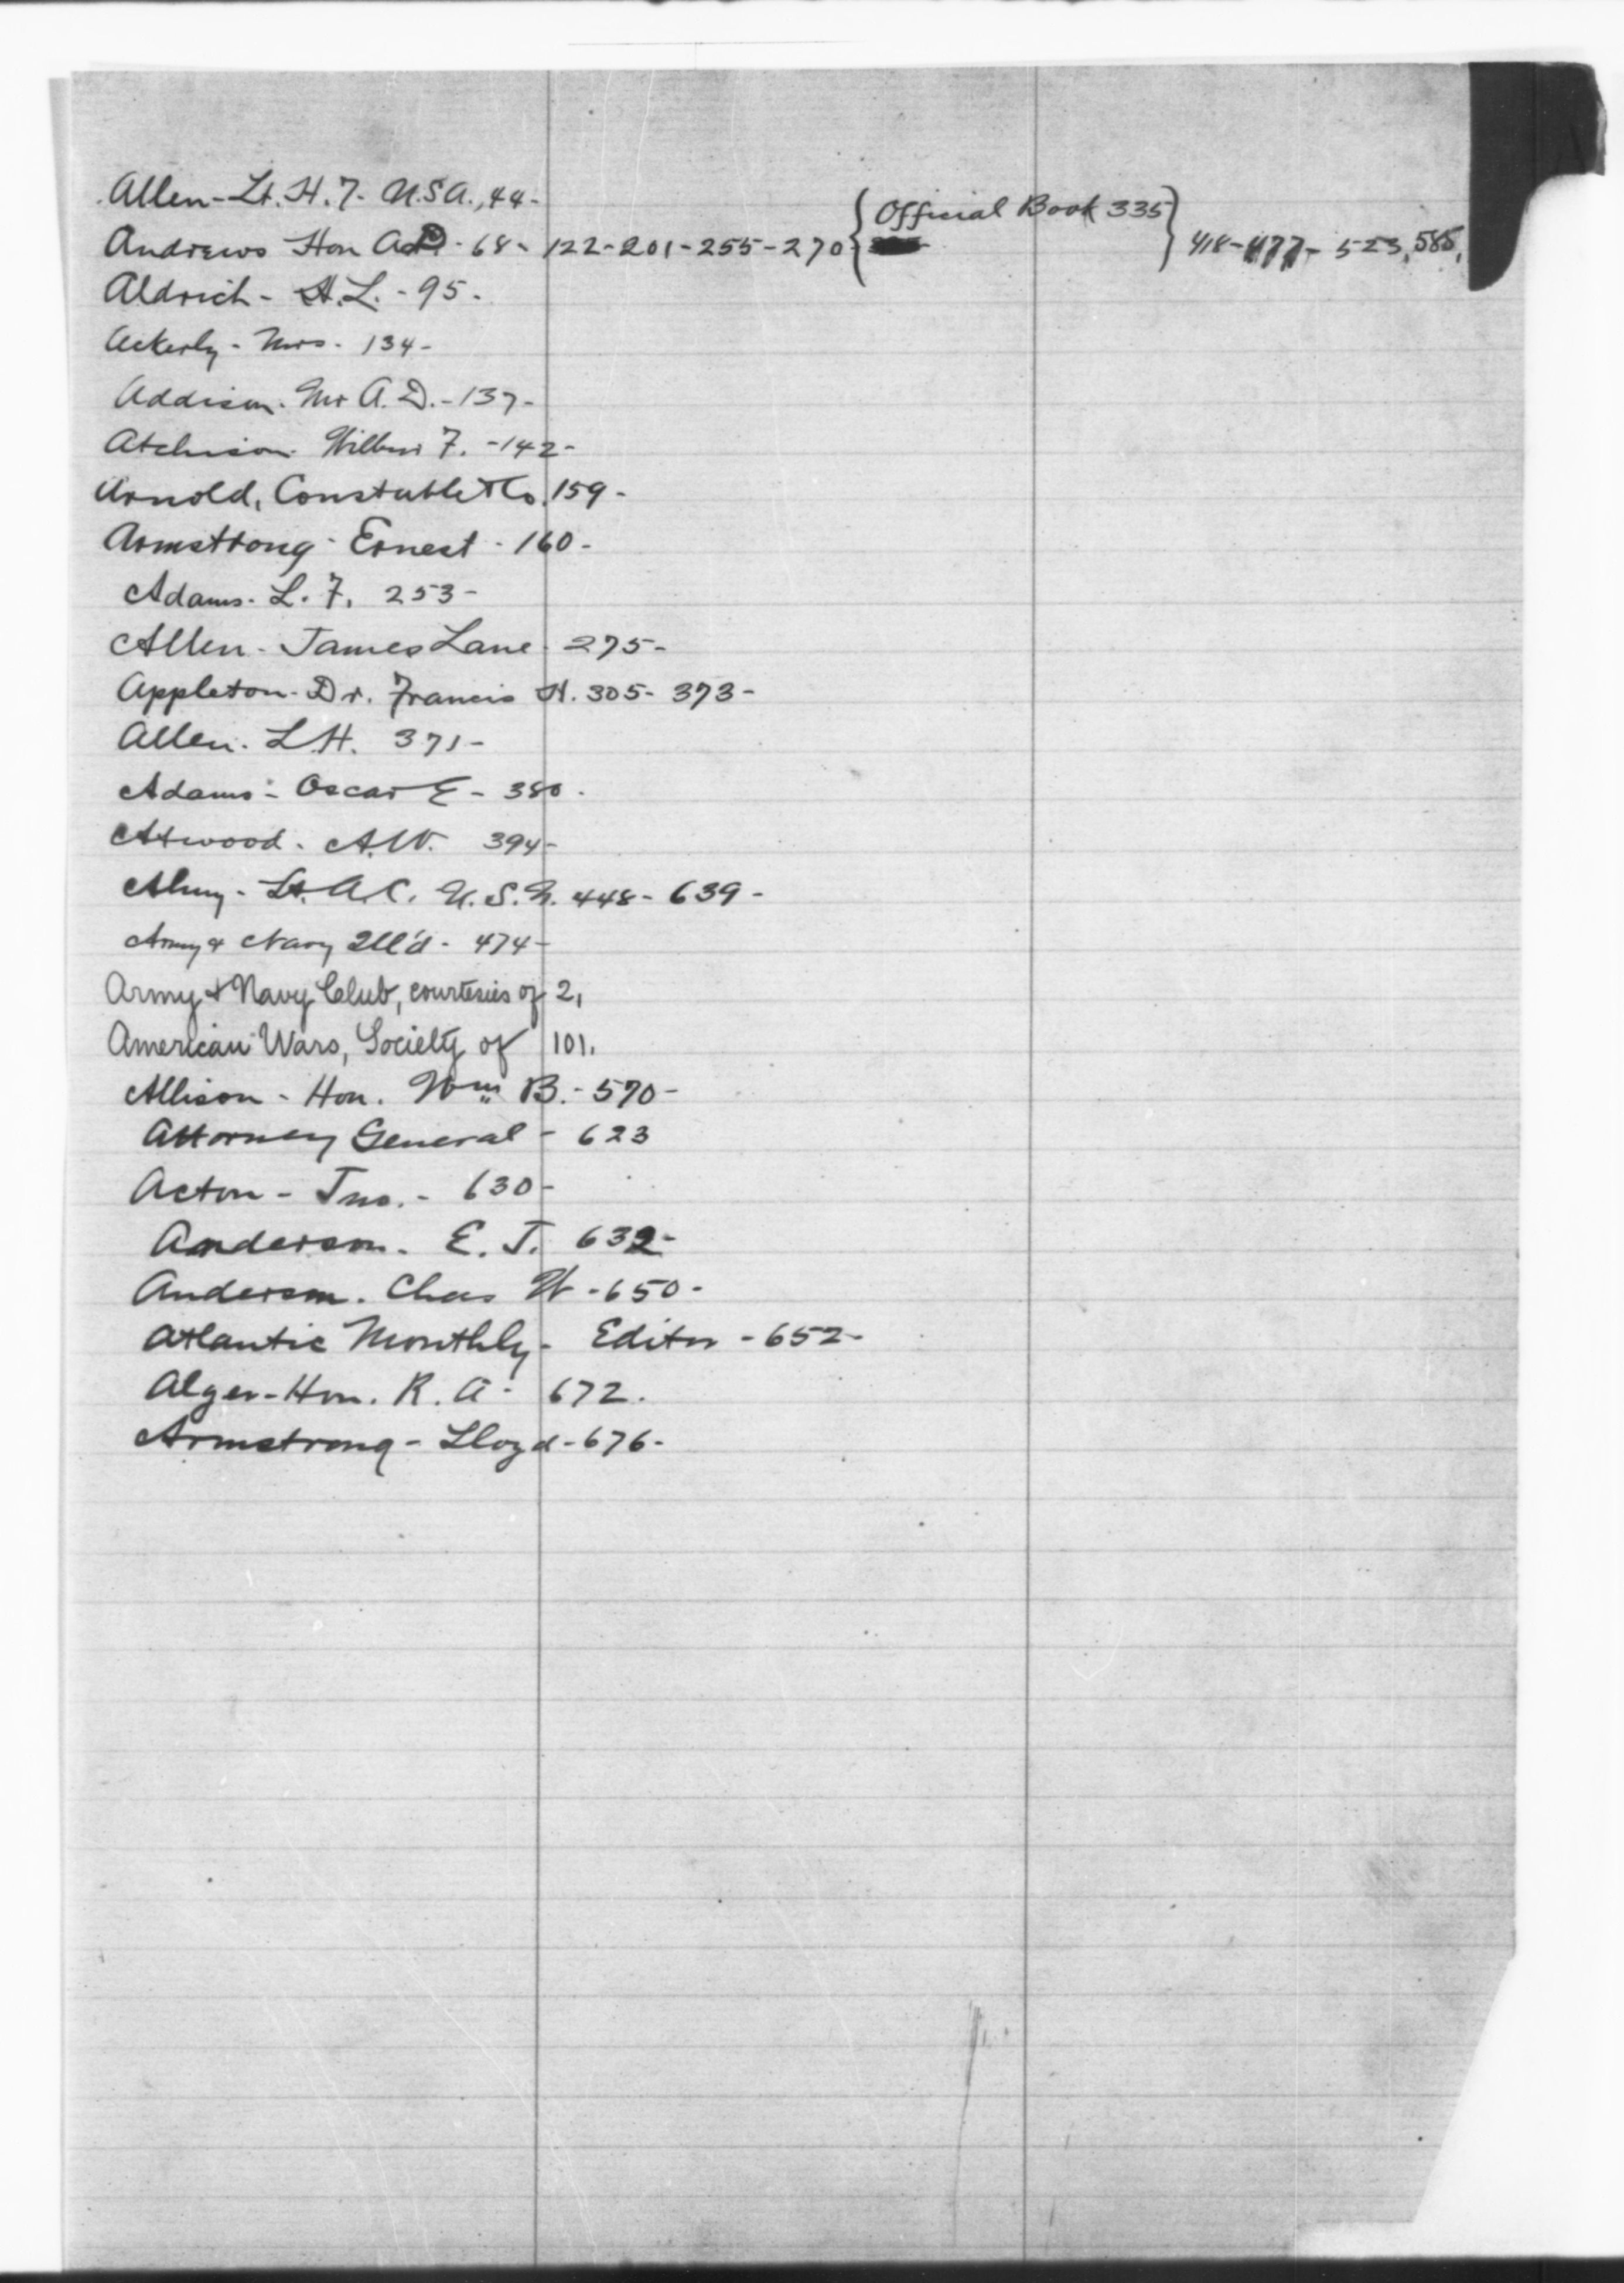 Allen - Lt. H. T. U.S.A., 44 -
Official Book 335
Andrews Hon A. D. - 68 - 122 - 201 - 255 - 270 { } 418 - 477 - 523, 585,
Aldrich - H. L. - 95 -
Ackerly - Mrs. 134 -
Addison. Mr A. D. - 137 -
Atchison. Wilbur F. - 142 -
Arnold, Constable & Co. 159 -
Armstrong - Ernest - 160 -
Adams - L. F. 253 -
Allen - James Lane - 275 -
Appleton - Dr. Francis H. 305 - 373 -
Allen. L. H. 371 -
Adams - Oscar E - 380 -
Atwood - A. W. 394 -
Almy - Lt. A. C. U. S. N. 448 - 639 -
Army & Navy Ill'd - 474 -
Army & Navy Club, courtesies of 2,
American Wars, Society of 101.
Allison - Hon. Wm B. - 570 -
Attorney General - 623
Acton - Jno. - 630 -
Anderson - E. J. 632 -
Anderson. Chas W - 650 -
Atlantic Monthly - Editor - 652 -
Alger - Hon. R. A - 672.
Armstrong - Lloyd - 676 -